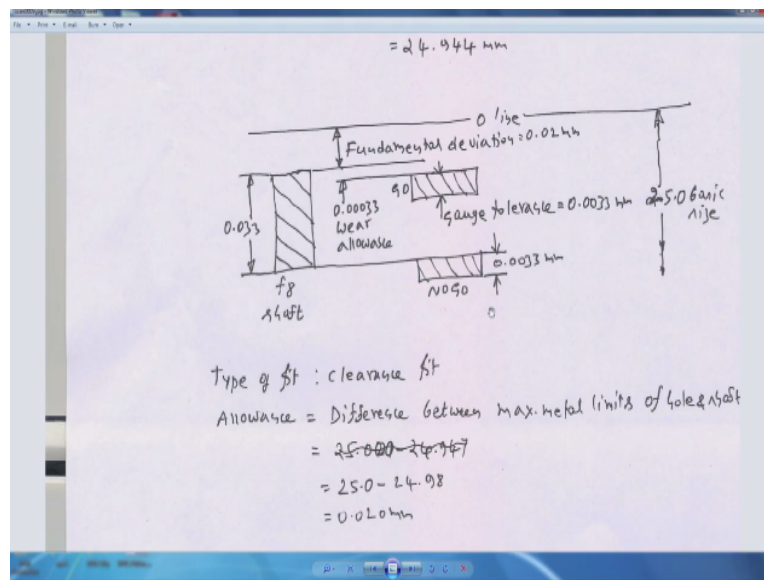 File Print E-mail Burn Open
= 24.944 mm
0 line
Fundamental deviation = 0.02 mm
GO
0.033
0.00033
wear
allowance
gauge tolerance = 0.0033 mm
25.0 basic
size
0.0033 mm
f8
shaft
NOGO
0
Type of fit : clearance fit
Allowance = Difference between max. metal limits of hole & shaft
= 25.000 - 24.947
= 25.0 - 24.98
= 0.020 mm